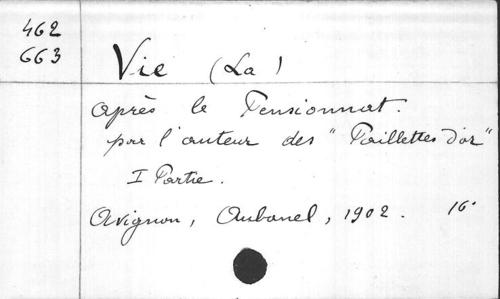 462
663
Vie (La)
après le Pensionnat.
par l'auteur des "Paillettes d'or"
I Partie.
Avignon, Aubanel, 1902. 16°